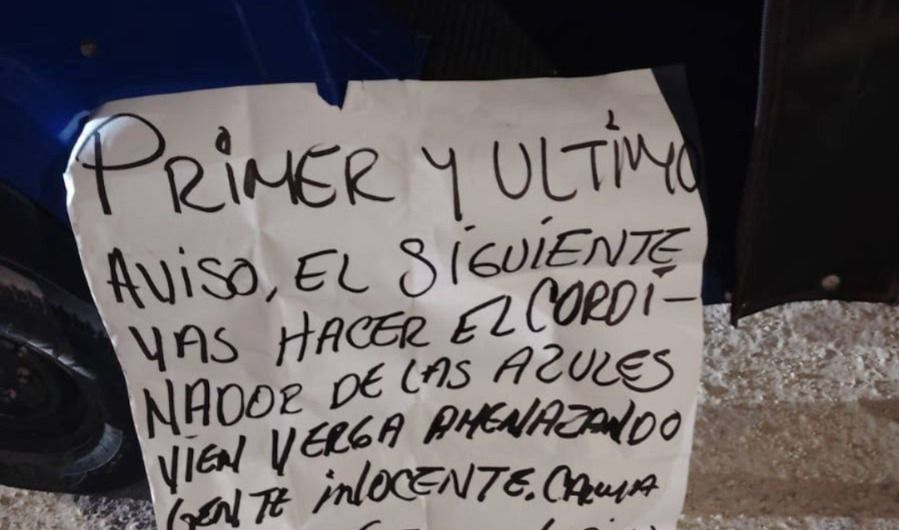 PRIMER Y ULTIMO
AVISO, EL SIGUIENTE
VAS HACER EL CORDI-
NADOR DE LAS AZULES
VIEN VERGA AMENAZANDO
GENTE INOCENTE. CALMA